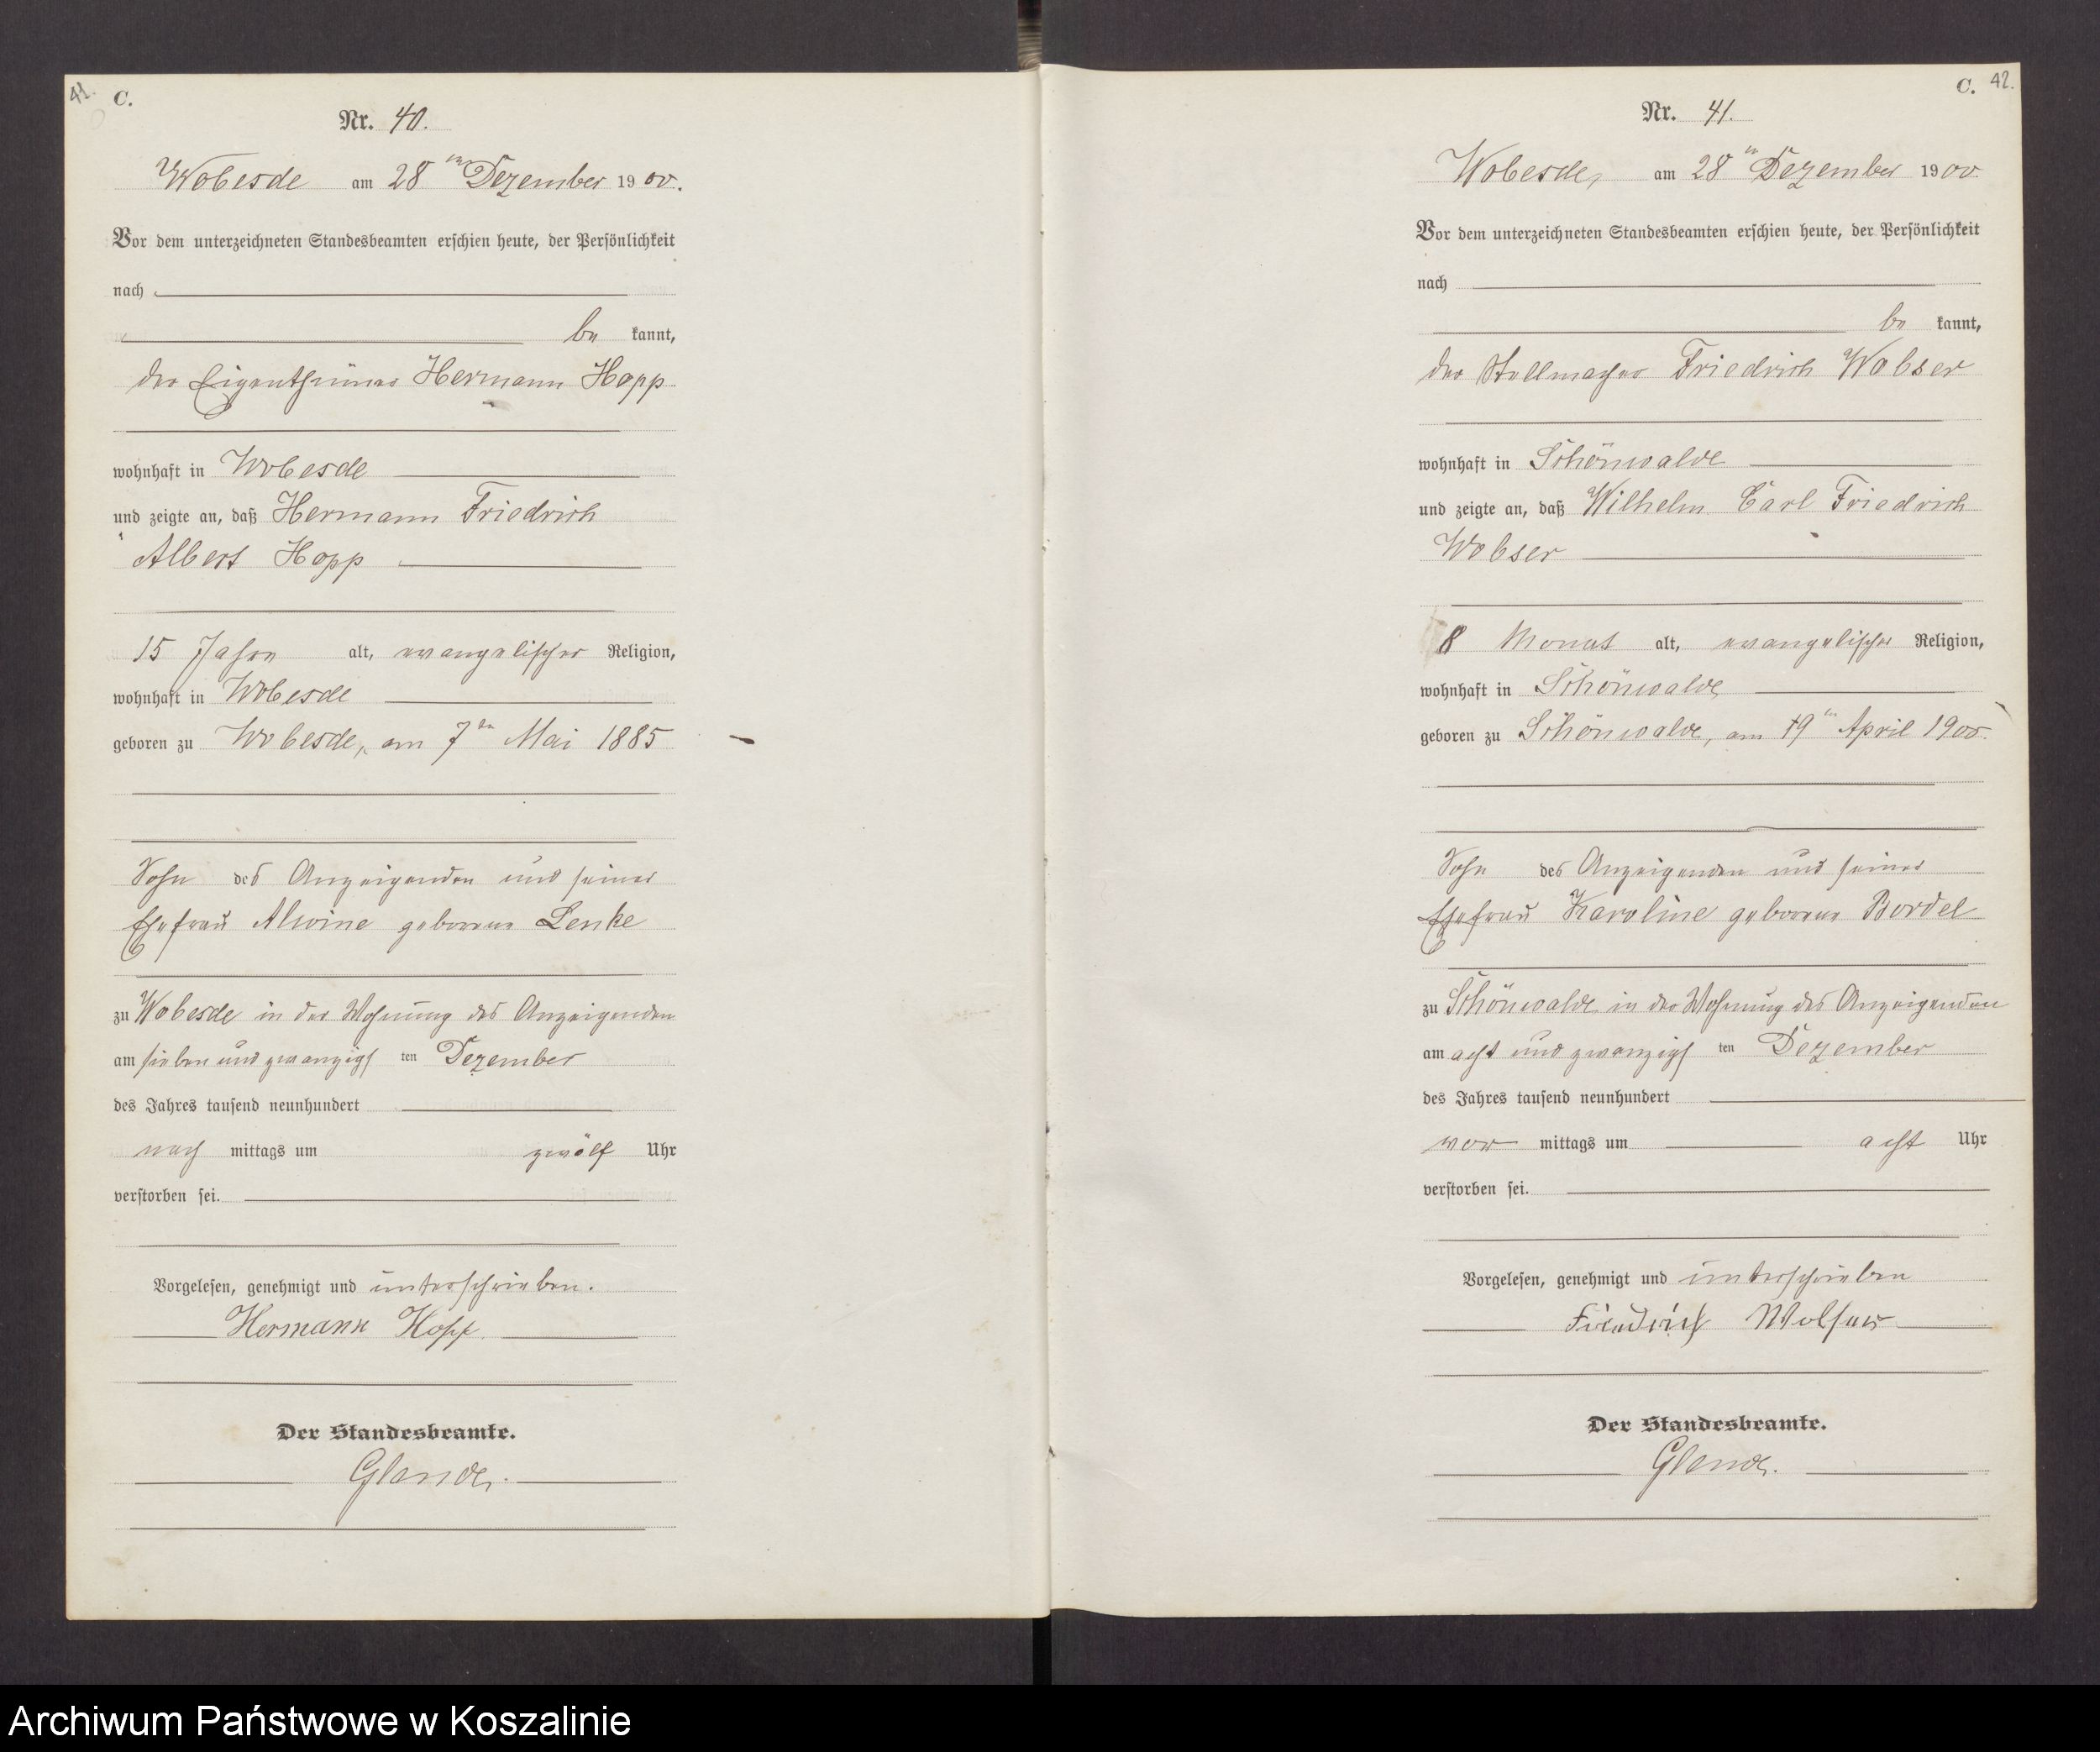 41.
C.
Nr. 40.
Wobesde am 28ten Dezember 1900.
Vor dem unterzeichneten Standesbeamten erschien heute, der Persönlichkeit
nach
be kannt,
der Eigenthümer Hermann Hopp
wohnhaft in Wobesde
und zeigte an, daß Hermann Friedrich
Albert Hopp
15 Jahre alt, evangelischer Religion,
wohnhaft in Wobesde
geboren zu Wobesde, am 7ten Mai 1885
Sohn des Anzeigenden und seiner
Ehefrau Alwine geborene Lenke
zu Wobesde in der Wohnung des Anzeigenden
am sieben und zwanzigs ten Dezember
des Jahres tausend neunhundert
nach mittags um zwölf Uhr
verstorben sei.
Vorgelesen, genehmigt und unterschrieben.
Hermann Hopp
Der Standesbeamte.
Glende.
C. 42.
Nr. 41.
Wobesde, am 28ten Dezember 1900.
Vor dem unterzeichneten Standesbeamten erschien heute, der Persönlichkeit
nach
be kannt,
der Stellmacher Friedrich Wobser
wohnhaft in Schönwalde
und zeigte an, daß Wilhelm Carl Friedrich
Wobser
8 Monat alt, evangelischer Religion,
wohnhaft in Schönwalde
geboren zu Schönwalde, am 19ten April 1900.
Sohn des Anzeigenden und seiner
Ehefrau Karoline geborene Bordel
zu Schönwalde in der Wohnung des Anzeigenden
am acht und zwanzigs ten Dezember
des Jahres tausend neunhundert
vor mittags um acht Uhr
verstorben sei.
Vorgelesen, genehmigt und unterschrieben
Friedrich Wobser
Der Standesbeamte.
Glende.
Archiwum Państwowe w Koszalinie